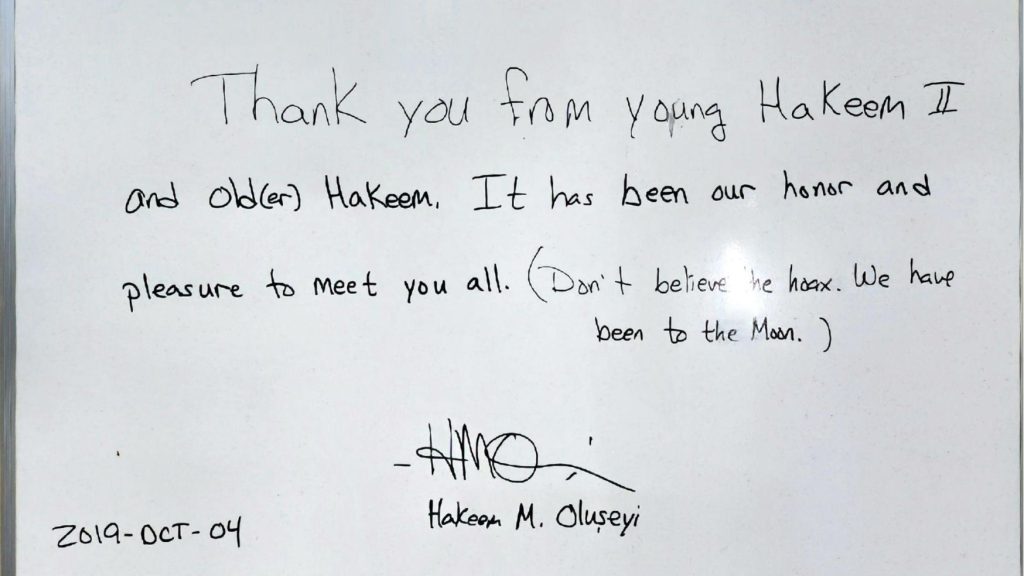 Thank you from young Hakeem II
and old(er) Hakeem. It has been our honor and
pleasure to meet you all. (Don't believe the hoax. We have
been to the Moon.)
- HMO
Hakeem M. Oluṣeyi
2019-OCT-04